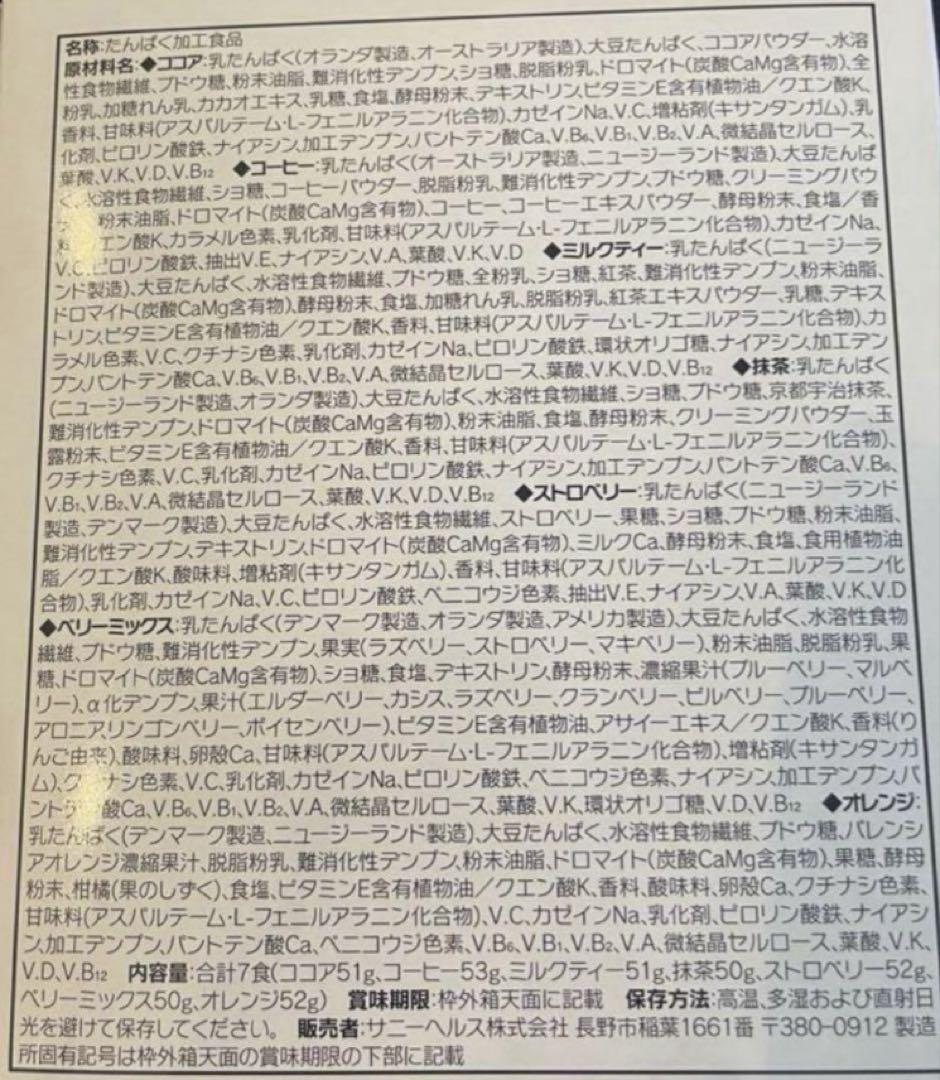 名称:たんぱく加工食品
原材料名:◆ココア:乳たんぱく(オランダ製造、オーストラリア製造)、大豆たんぱく、ココアパウダー、水溶
性食物繊維、ブドウ糖、粉末油脂、難消化性デンプン、ショ糖、脱脂粉乳、ドロマイト(炭酸CaMg含有物)、全
粉乳、加糖れん乳、カカオエキス、乳糖、食塩、酵母粉末、デキストリン、ビタミンE含有植物油/クエン酸K、
香料、甘味料(アスパルテーム・L-フェニルアラニン化合物)、カゼインNa、V.C、増粘剤(キサンタンガム)、乳
化剤、ピロリン酸鉄、ナイアシン、加工デンプン、パントテン酸Ca、V.B₆、V.B₁、V.B₂、V.A、微結晶セルロース、
葉酸、V.K、V.D、V.B₁₂ ◆コーヒー:乳たんぱく(オーストラリア製造、ニュージーランド製造)、大豆たんぱ
く、水溶性食物繊維、ショ糖、コーヒーパウダー、脱脂粉乳、難消化性デンプン、ブドウ糖、クリーミングパウ
粉末油脂、ドロマイト(炭酸CaMg含有物)、コーヒー、コーヒーエキスパウダー、酵母粉末、食塩/香
エン酸K、カラメル色素、乳化剤、甘味料(アスパルテーム・L-フェニルアラニン化合物)、カゼインNa、
V.C、ピロリン酸鉄、抽出V.E、ナイアシン、V.A、葉酸、V.K、V.D ◆ミルクティー:乳たんぱく(ニュージーラ
ンド製造)、大豆たんぱく、水溶性食物繊維、ブドウ糖、全粉乳、ショ糖、紅茶、難消化性デンプン、粉末油脂、
ドロマイト(炭酸CaMg含有物)、酵母粉末、食塩、加糖れん乳、脱脂粉乳、紅茶エキスパウダー、乳糖、デキス
トリン、ビタミンE含有植物油/クエン酸K、香料、甘味料(アスパルテーム・L-フェニルアラニン化合物)、カ
ラメル色素、V.C、クチナシ色素、乳化剤、カゼインNa、ピロリン酸鉄、環状オリゴ糖、ナイアシン、加工デン
プン、パントテン酸Ca、V.B₆、V.B₁、V.B₂、V.A、微結晶セルロース、葉酸、V.K、V.D、V.B₁₂ ◆抹茶:乳たんぱく
(ニュージーランド製造、オランダ製造)、大豆たんぱく、水溶性食物繊維、ショ糖、ブドウ糖、京都宇治抹茶、
難消化性デンプン、ドロマイト(炭酸CaMg含有物)、粉末油脂、食塩、酵母粉末、クリーミングパウダー、玉
露粉末、ビタミンE含有植物油/クエン酸K、香料、甘味料(アスパルテーム・L-フェニルアラニン化合物)、
クチナシ色素、V.C、乳化剤、カゼインNa、ピロリン酸鉄、ナイアシン、加工デンプン、パントテン酸Ca、V.B₆、
V.B₁、V.B₂、V.A、微結晶セルロース、葉酸、V.K、V.D、V.B₁₂ ◆ストロベリー:乳たんぱく(ニュージーランド
製造、デンマーク製造)、大豆たんぱく、水溶性食物繊維、ストロベリー、果糖、ショ糖、ブドウ糖、粉末油脂、
難消化性デンプン、デキストリン、ドロマイト(炭酸CaMg含有物)、ミルクCa、酵母粉末、食塩、食用植物油
脂/クエン酸K、酸味料、増粘剤(キサンタンガム)、香料、甘味料(アスパルテーム・L-フェニルアラニン化
合物)、乳化剤、カゼインNa、V.C、ピロリン酸鉄、ベニコウジ色素、抽出V.E、ナイアシン、V.A、葉酸、V.K、V.D
◆ベリーミックス:乳たんぱく(デンマーク製造、オランダ製造、アメリカ製造)、大豆たんぱく、水溶性食物
繊維、ブドウ糖、難消化性デンプン、果実(ラズベリー、ストロベリー、マキベリー)、粉末油脂、脱脂粉乳、果
糖、ドロマイト(炭酸CaMg含有物)、ショ糖、食塩、デキストリン、酵母粉末、濃縮果汁(ブルーベリー、マルベ
リー)、α化デンプン、果汁(エルダーベリー、カシス、ラズベリー、クランベリー、ビルベリー、ブルーベリー、
アロニア、リンゴンベリー、ボイセンベリー)、ビタミンE含有植物油、アサイーエキス/クエン酸K、香料(り
んご由来)、酸味料、卵殻Ca、甘味料(アスパルテーム・L-フェニルアラニン化合物)、増粘剤(キサンタンガ
ム)、クチナシ色素、V.C、乳化剤、カゼインNa、ピロリン酸鉄、ベニコウジ色素、ナイアシン、加工デンプン、パ
ントテン酸Ca、V.B₆、V.B₁、V.B₂、V.A、微結晶セルロース、葉酸、V.K、環状オリゴ糖、V.D、V.B₁₂ ◆オレンジ:
乳たんぱく(デンマーク製造、ニュージーランド製造)、大豆たんぱく、水溶性食物繊維、ブドウ糖、バレンシ
アオレンジ濃縮果汁、脱脂粉乳、難消化性デンプン、粉末油脂、ドロマイト(炭酸CaMg含有物)、果糖、酵母
粉末、柑橘(果のしずく)、食塩、ビタミンE含有植物油/クエン酸K、香料、酸味料、卵殻Ca、クチナシ色素、
甘味料(アスパルテーム・L-フェニルアラニン化合物)、V.C、カゼインNa、乳化剤、ピロリン酸鉄、ナイアシ
ン、加工デンプン、パントテン酸Ca、ベニコウジ色素、V.B₆、V.B₁、V.B₂、V.A、微結晶セルロース、葉酸、V.K、
V.D、V.B₁₂ 内容量:合計7食(ココア51g、コーヒー53g、ミルクティー51g、抹茶50g、ストロベリー52g、
ベリーミックス50g、オレンジ52g) 賞味期限:枠外箱天面に記載 保存方法:高温、多湿および直射日
光を避けて保存してください。 販売者:サニーヘルス株式会社 長野市稲葉1661番 〒380-0912 製造
所固有記号は枠外箱天面の賞味期限の下部に記載